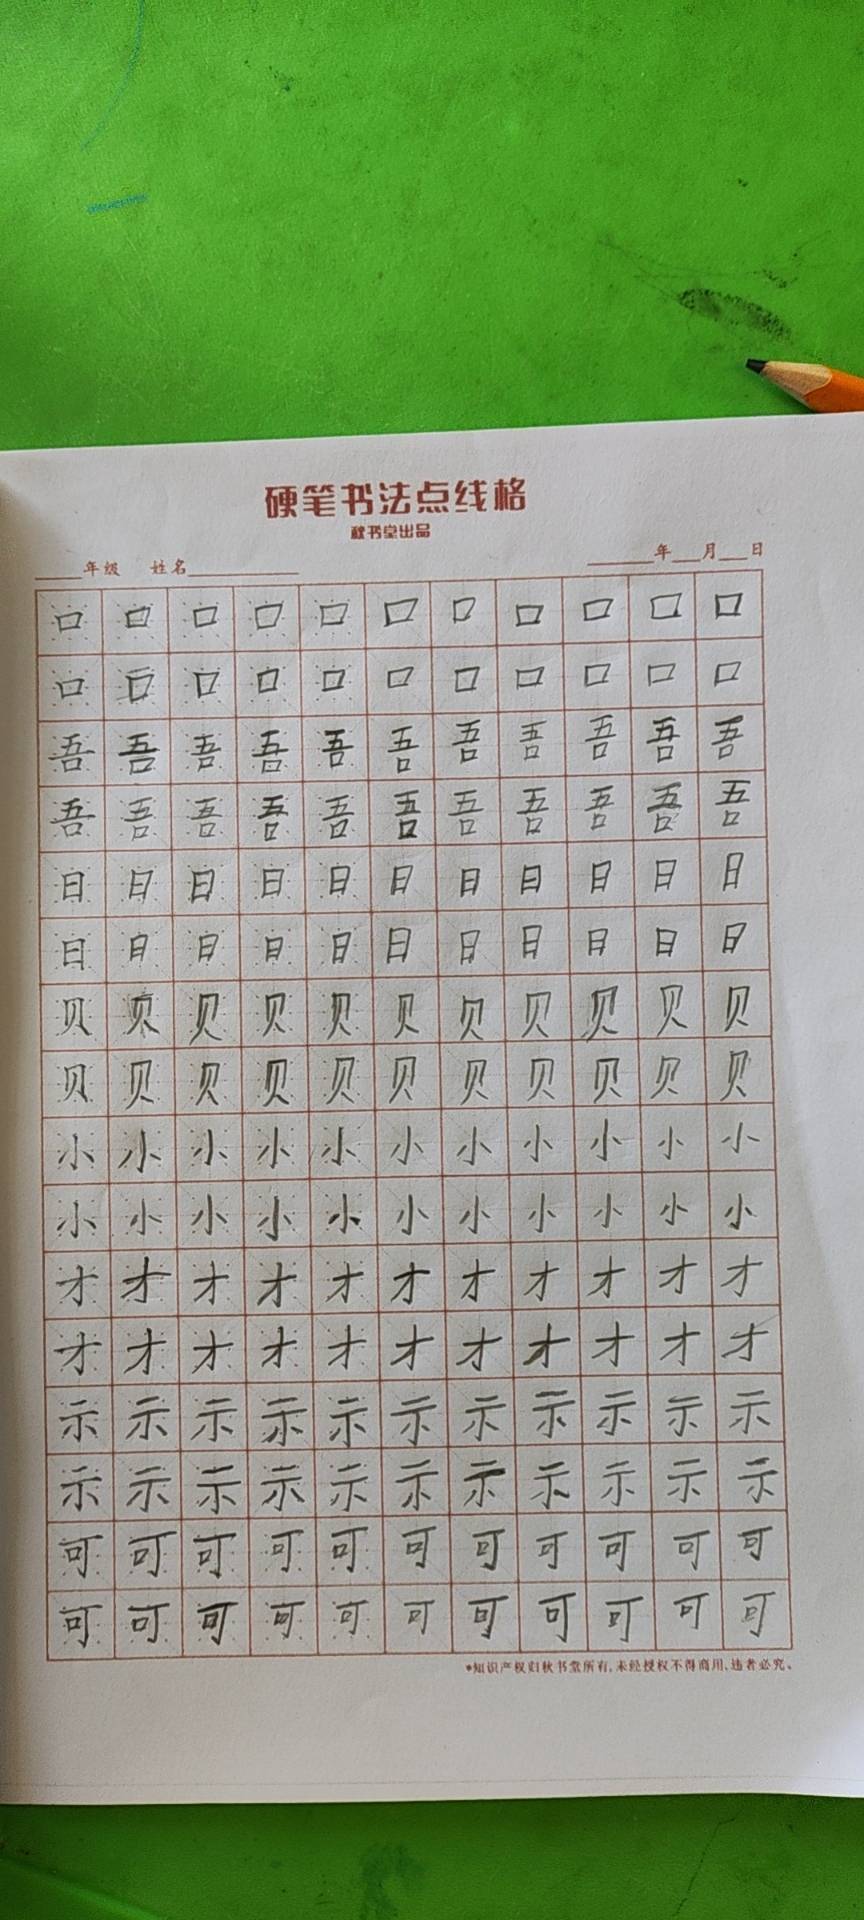 硬笔书法点线格
秋书堂出品
____年级 姓名__________ ______年___月___日
口口口口口口口口口口口
口口口口口口口口口口口
吾吾吾吾吾吾吾吾吾吾吾
吾吾吾吾吾吾吾吾吾吾吾
日日日日日日日日日日日
日日日日日日日日日日日
贝贝贝贝贝贝贝贝贝贝贝
贝贝贝贝贝贝贝贝贝贝贝
小小小小小小小小小小小
小小小小小小小小小小小
才才才才才才才才才才才
才才才才才才才才才才才
示示示示示示示示示示示
示示示示示示示示示示示
可可可可可可可可可可可
可可可可可可可可可可可
*知识产权归秋书堂所有,未经授权不得商用,违者必究。